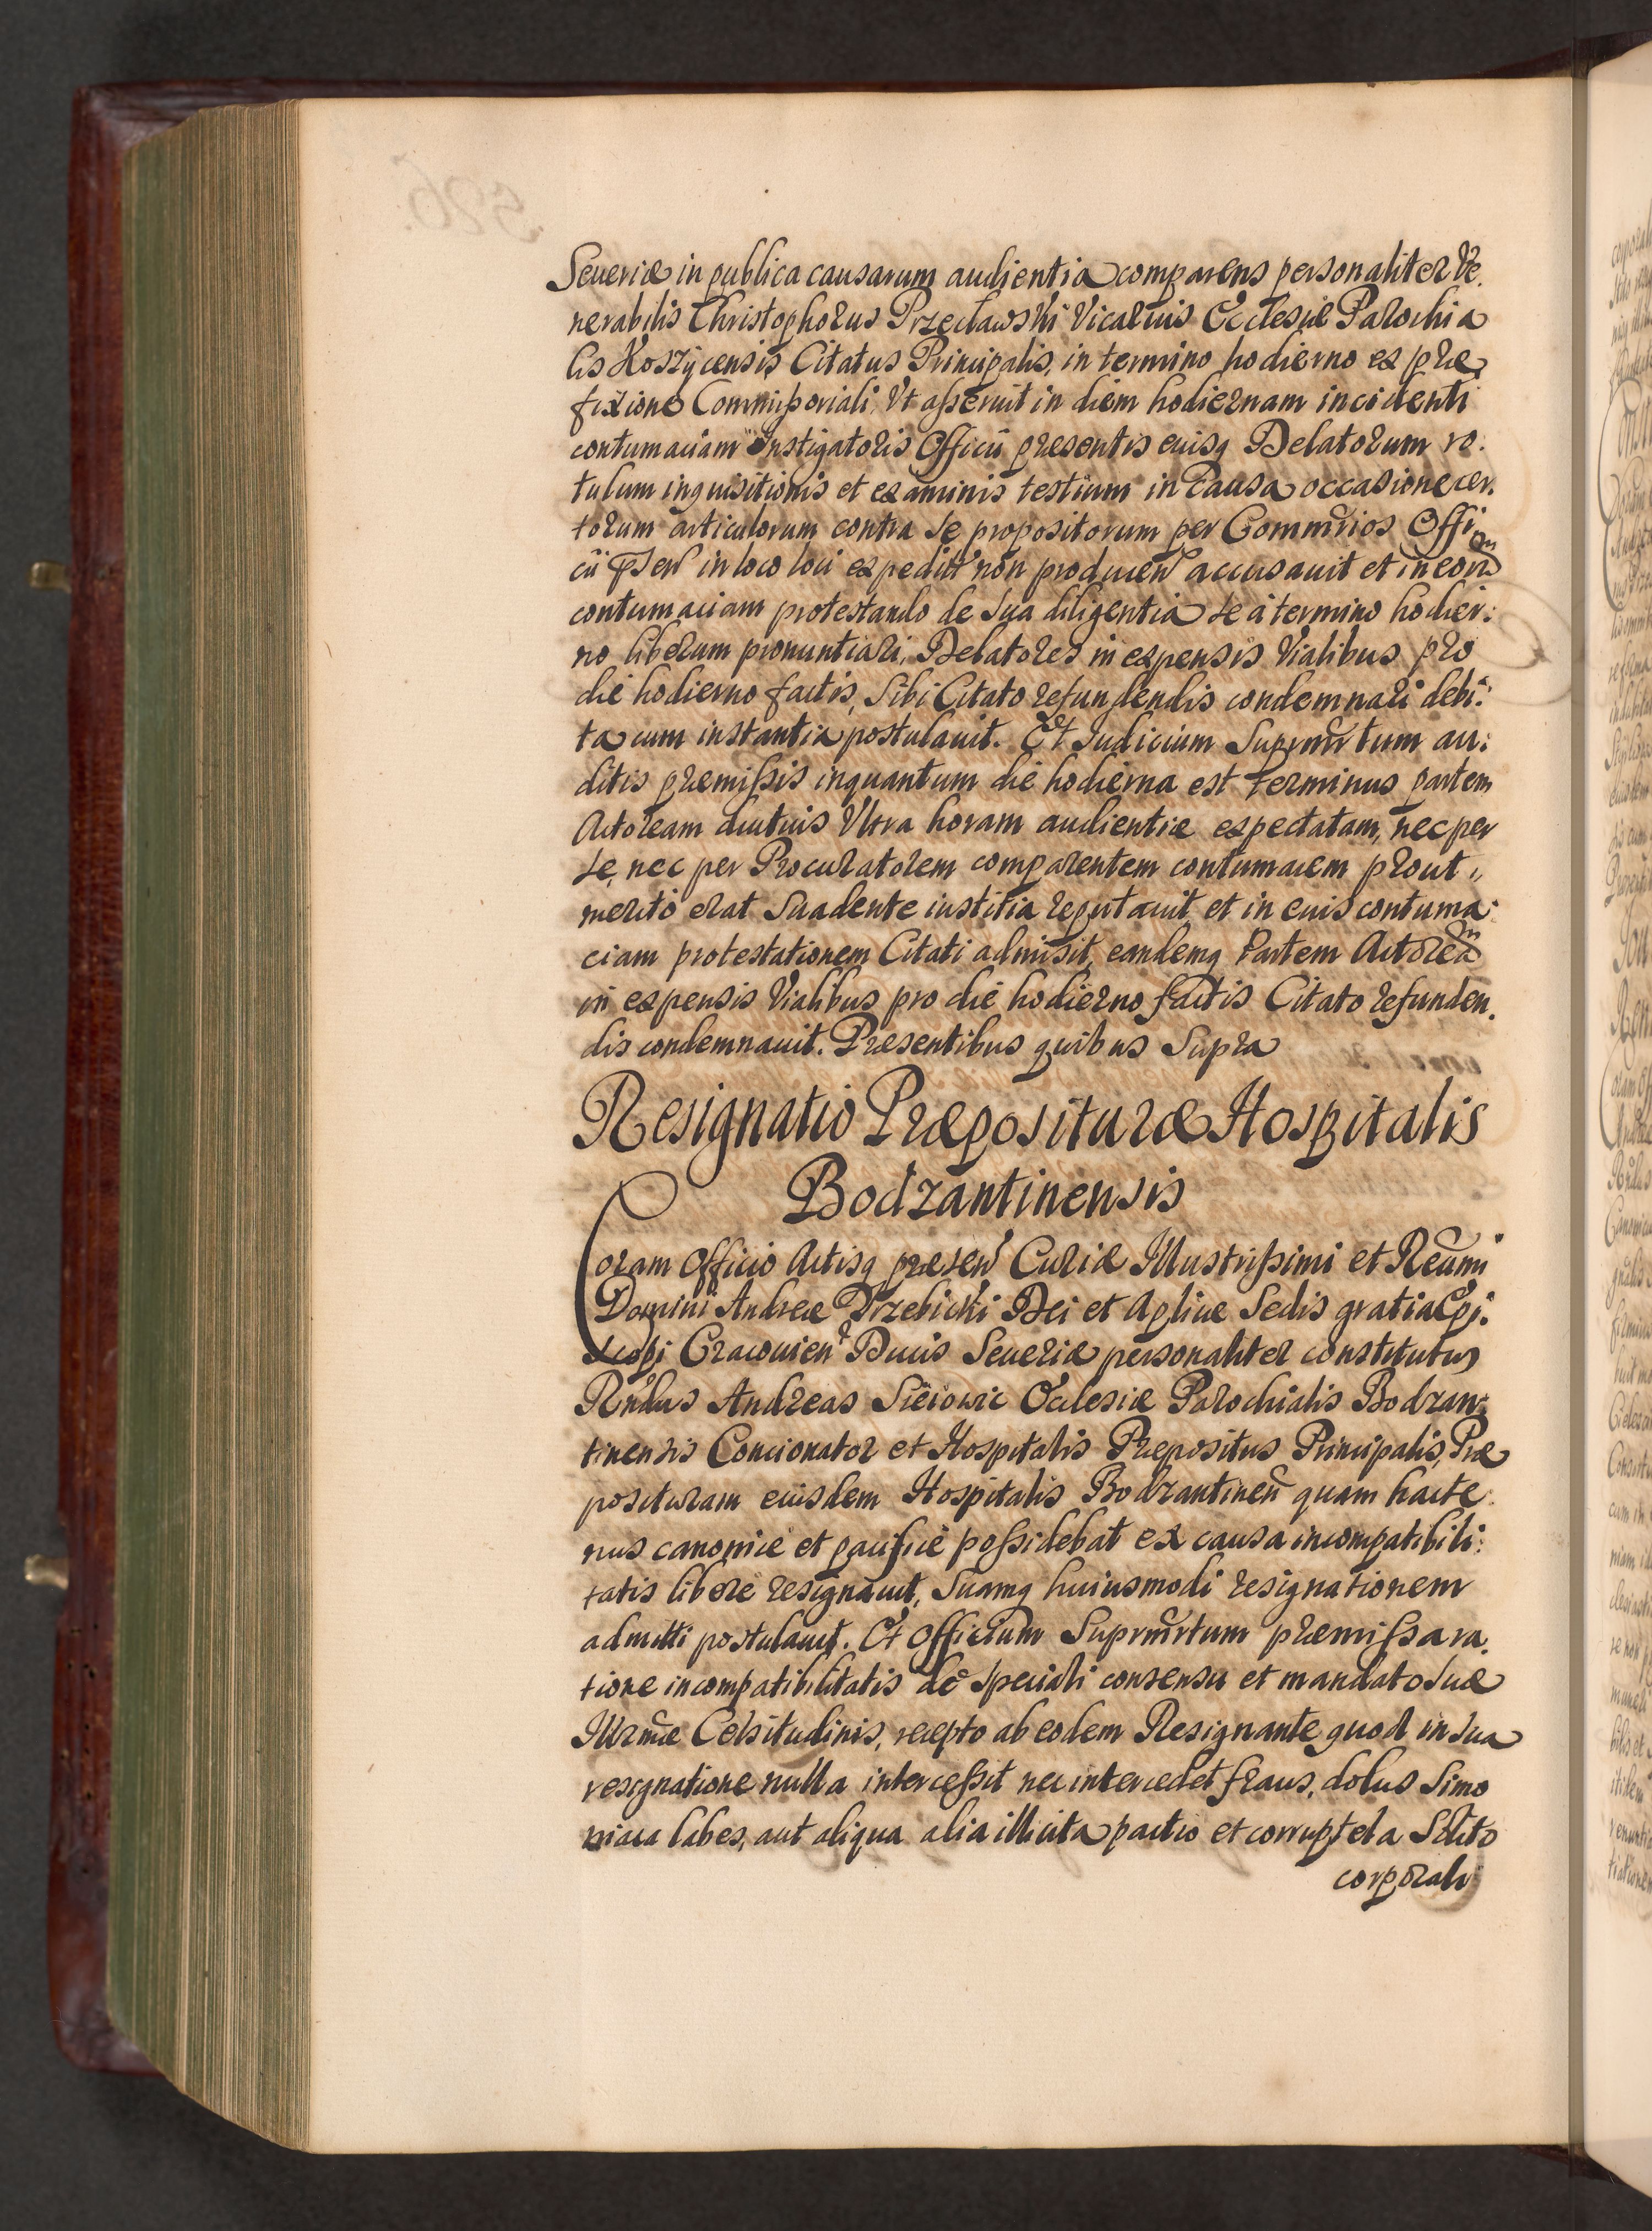 Seueriæ in publica causarum audientia comparens personaliter Ve.
nerabilis Christophorus Przecławski Vicarius Ecclesiæ Parochia
lis Koszÿcensis Citatus Principalis, in termino hodierno ex præ
fixione Commissoriali, Vt asseruit in diem hodiernam incidenti
contumaciam Instigatoris Officii presentis eiusq Delatorum ro.
tulum inquisitionis et examinis testium in Causa occasione cer.
torum articulorum contra se propositorum per Commrios Offi
cii pnsen in loco loci expedit non producen accusauit et in eorum
contumaciam protestando de sua diligentia se à termino hodier:
no liberum pronuntiari, Delatores in expensis Vialibus pro
die hodierno factis, sibi Citato refundendis condemnari debi:
ta cum instantia postulauit. Et Iudicium Suprmrtum au:
ditis præmissis inquantum die hodierna est terminus partem
Actoream diutius Vltra horam audientiæ expectatam, nec per
se, nec per Procuratorem comparentem contumacem prout
merito erat suadente iustitia reputauit et in eius contuma:
ciam protestationem Citati admisit, eandemq Partem Actoream
in expensis Vialibus pro die hodierno factis Citato refunden.
dis condemnauit. Presentibus quibus Supra
Resignatio Præposituræ Hospitalis
Bodzantinensis
Coram Officio Actisq presen Curiæ Illustrissimi et Reumi
Domini Andreæ Trzebicki Dei et Aplicæ Sedis gratia Epi:
scopi Cracouien Ducis Seueriæ personaliter constitutus
Rndus Andreas Sieiowic Ecclesiæ Parochialis Bodzan:
tinensis Concionator et Hospitalis Præpositus Principalis, Præ
posituram eiusdem Hospitalis Bodzantinen quam hacte.
nus canonice et pacifice possidebat ex causa incompatibili:
tatis libere resignauit, Suamq huiusmodi resignationem
admitti postulauit. Et Officium Suprmrtum præmissa ra.
tione incompatibilitatis de speciali consensu et mandato Suæ
Illrmæ Celsitudinis, recepto ab eodem Resignante quod in sua
resignatione nulla intercessit nec intercedet fraus, dolus Simo
niaca labes, aut aliqua alia illicita pactio et corruptela Solito
corporali